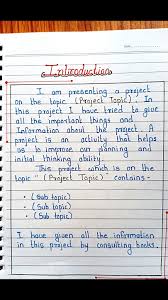 Introduction
I am presenting a project
on the topic (Project Topic). In
this project I have tried to give
all the important things and
Information about the project. A
project is an activity that helps
us to improve our planning and
initial thinking ability.
This project which is on the
topic "(Project Topic)" contains-
• (Sub topic)
• (Sub topic)
• (Sub topic)
I have given all the information
in this project by consulting books,